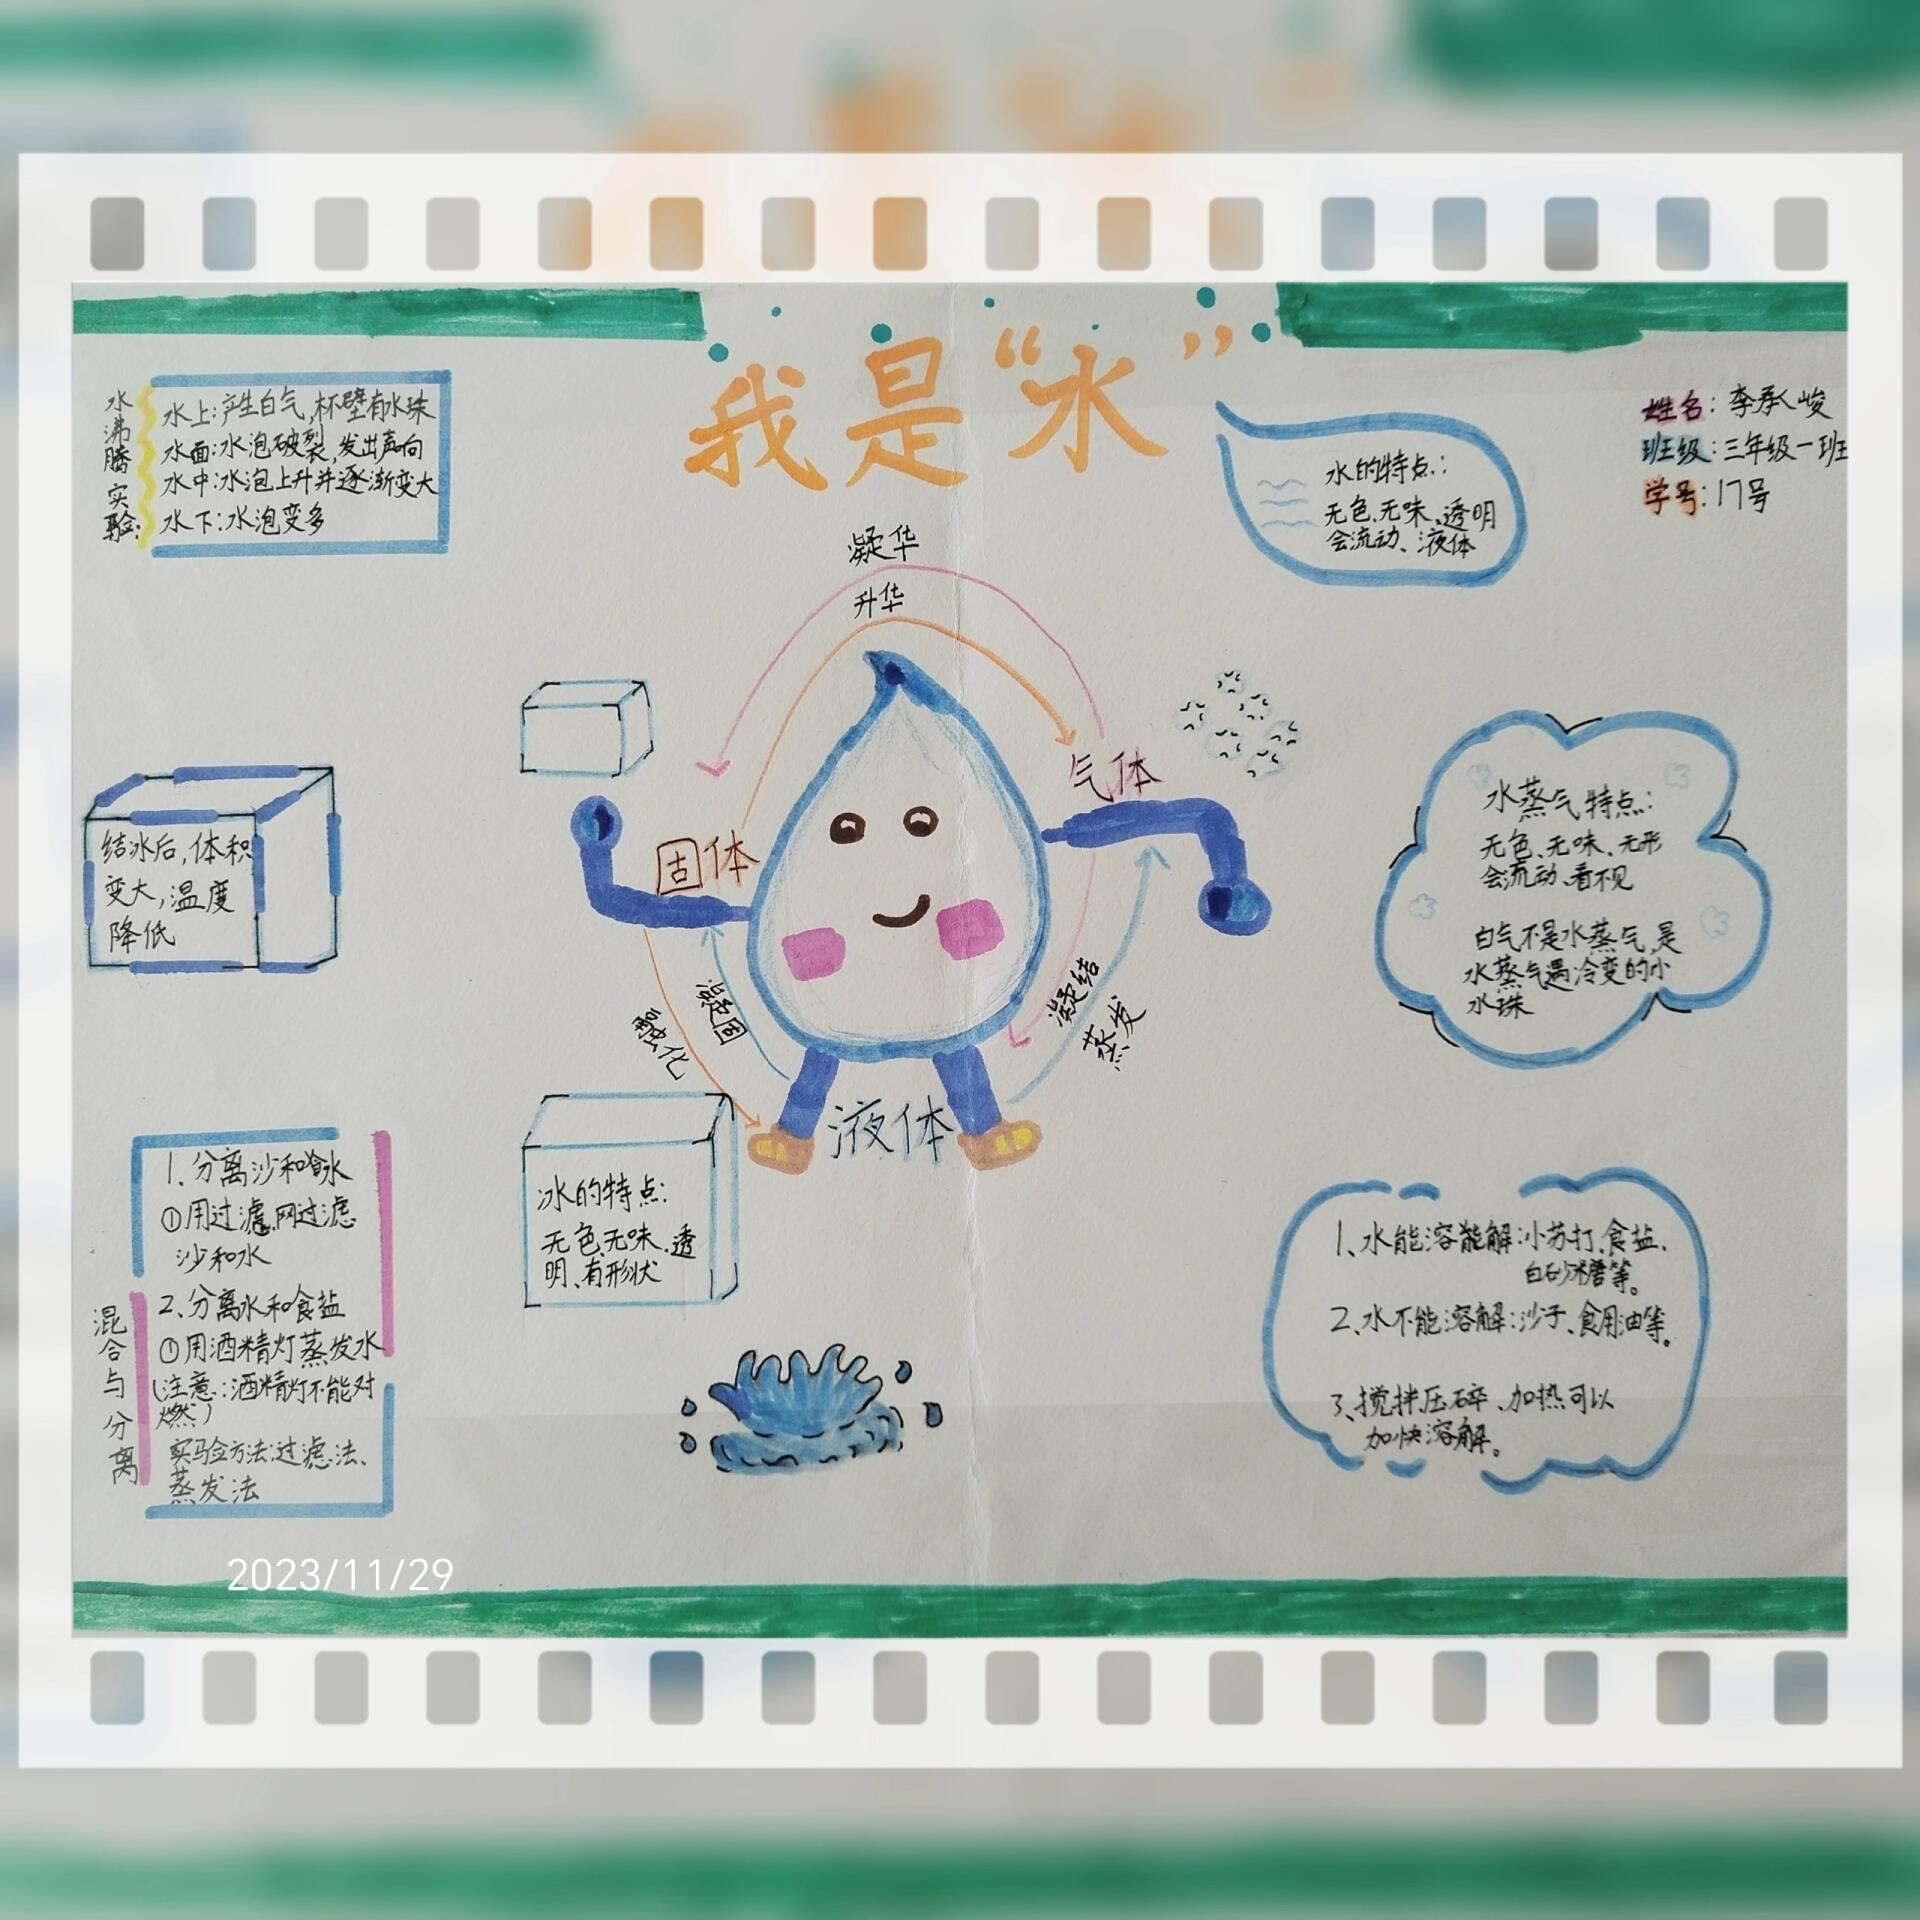 我是“水”
姓名：李承峻
班级：三年级一班
学号：17号
水沸腾实验：
水上：产生白气，杯壁有水珠
水面：水泡破裂，发出声响
水中：水泡上升并逐渐变大
水下：水泡变多
水的特点：
无色、无味、透明
会流动、液体
凝华
升华
气体
固体
液体
凝固
融化
凝结
蒸发
结冰后，体积
变大，温度
降低
水蒸气特点：
无色、无味、无形
会流动、看不见
白气不是水蒸气，是
水蒸气遇冷变的小
水珠
混合与分离
1、分离沙和水
①用过滤网过滤
沙和水
2、分离水和食盐
①用酒精灯蒸发水
（注意：酒精灯不能对
燃）
实验方法：过滤法、
蒸发法
冰的特点：
无色、无味、透
明、有形状
1、水能溶解：小苏打、食盐、
白砂糖等。
2、水不能溶解：沙子、食用油等。
3、搅拌、压碎、加热可以
加快溶解。
2023/11/29